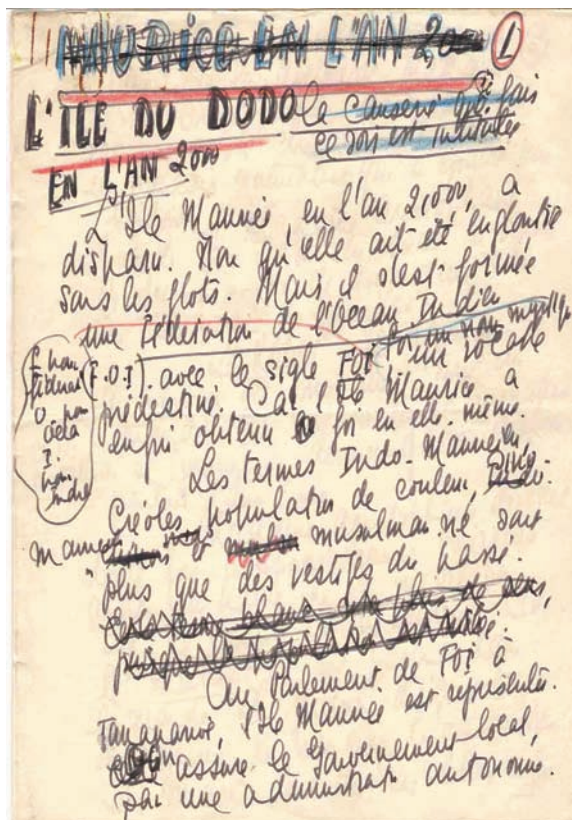 MAURICE EN L'AN 2000
1
L'ILE DU DODO
la causerie que je fais
ce soir est intitulée
EN L'AN 2000
L'Ile Maurice, en l'an 2,000, a
disparu. Non qu'elle ait été engloutie
sous les flots. Mais il s'est formée
une Fédération de l'Océan Indien
(F.O.I). avec le sigle FOI
un vocable
prédestiné. Car l'Ile Maurice a
enfin obtenu foi en elle-même.
F pour
O pour
I.
pour
Inde
Les termes Indo-Mauricien,
Créoles, population de couleur, Sino-
mauricien musulman ne sont
plus que des vestiges du passé.
Au Parlement de FOI à
Tananarive, l'Ile Maurice est représentée.
assure le Gouvernement local,
par une administrat autonome.